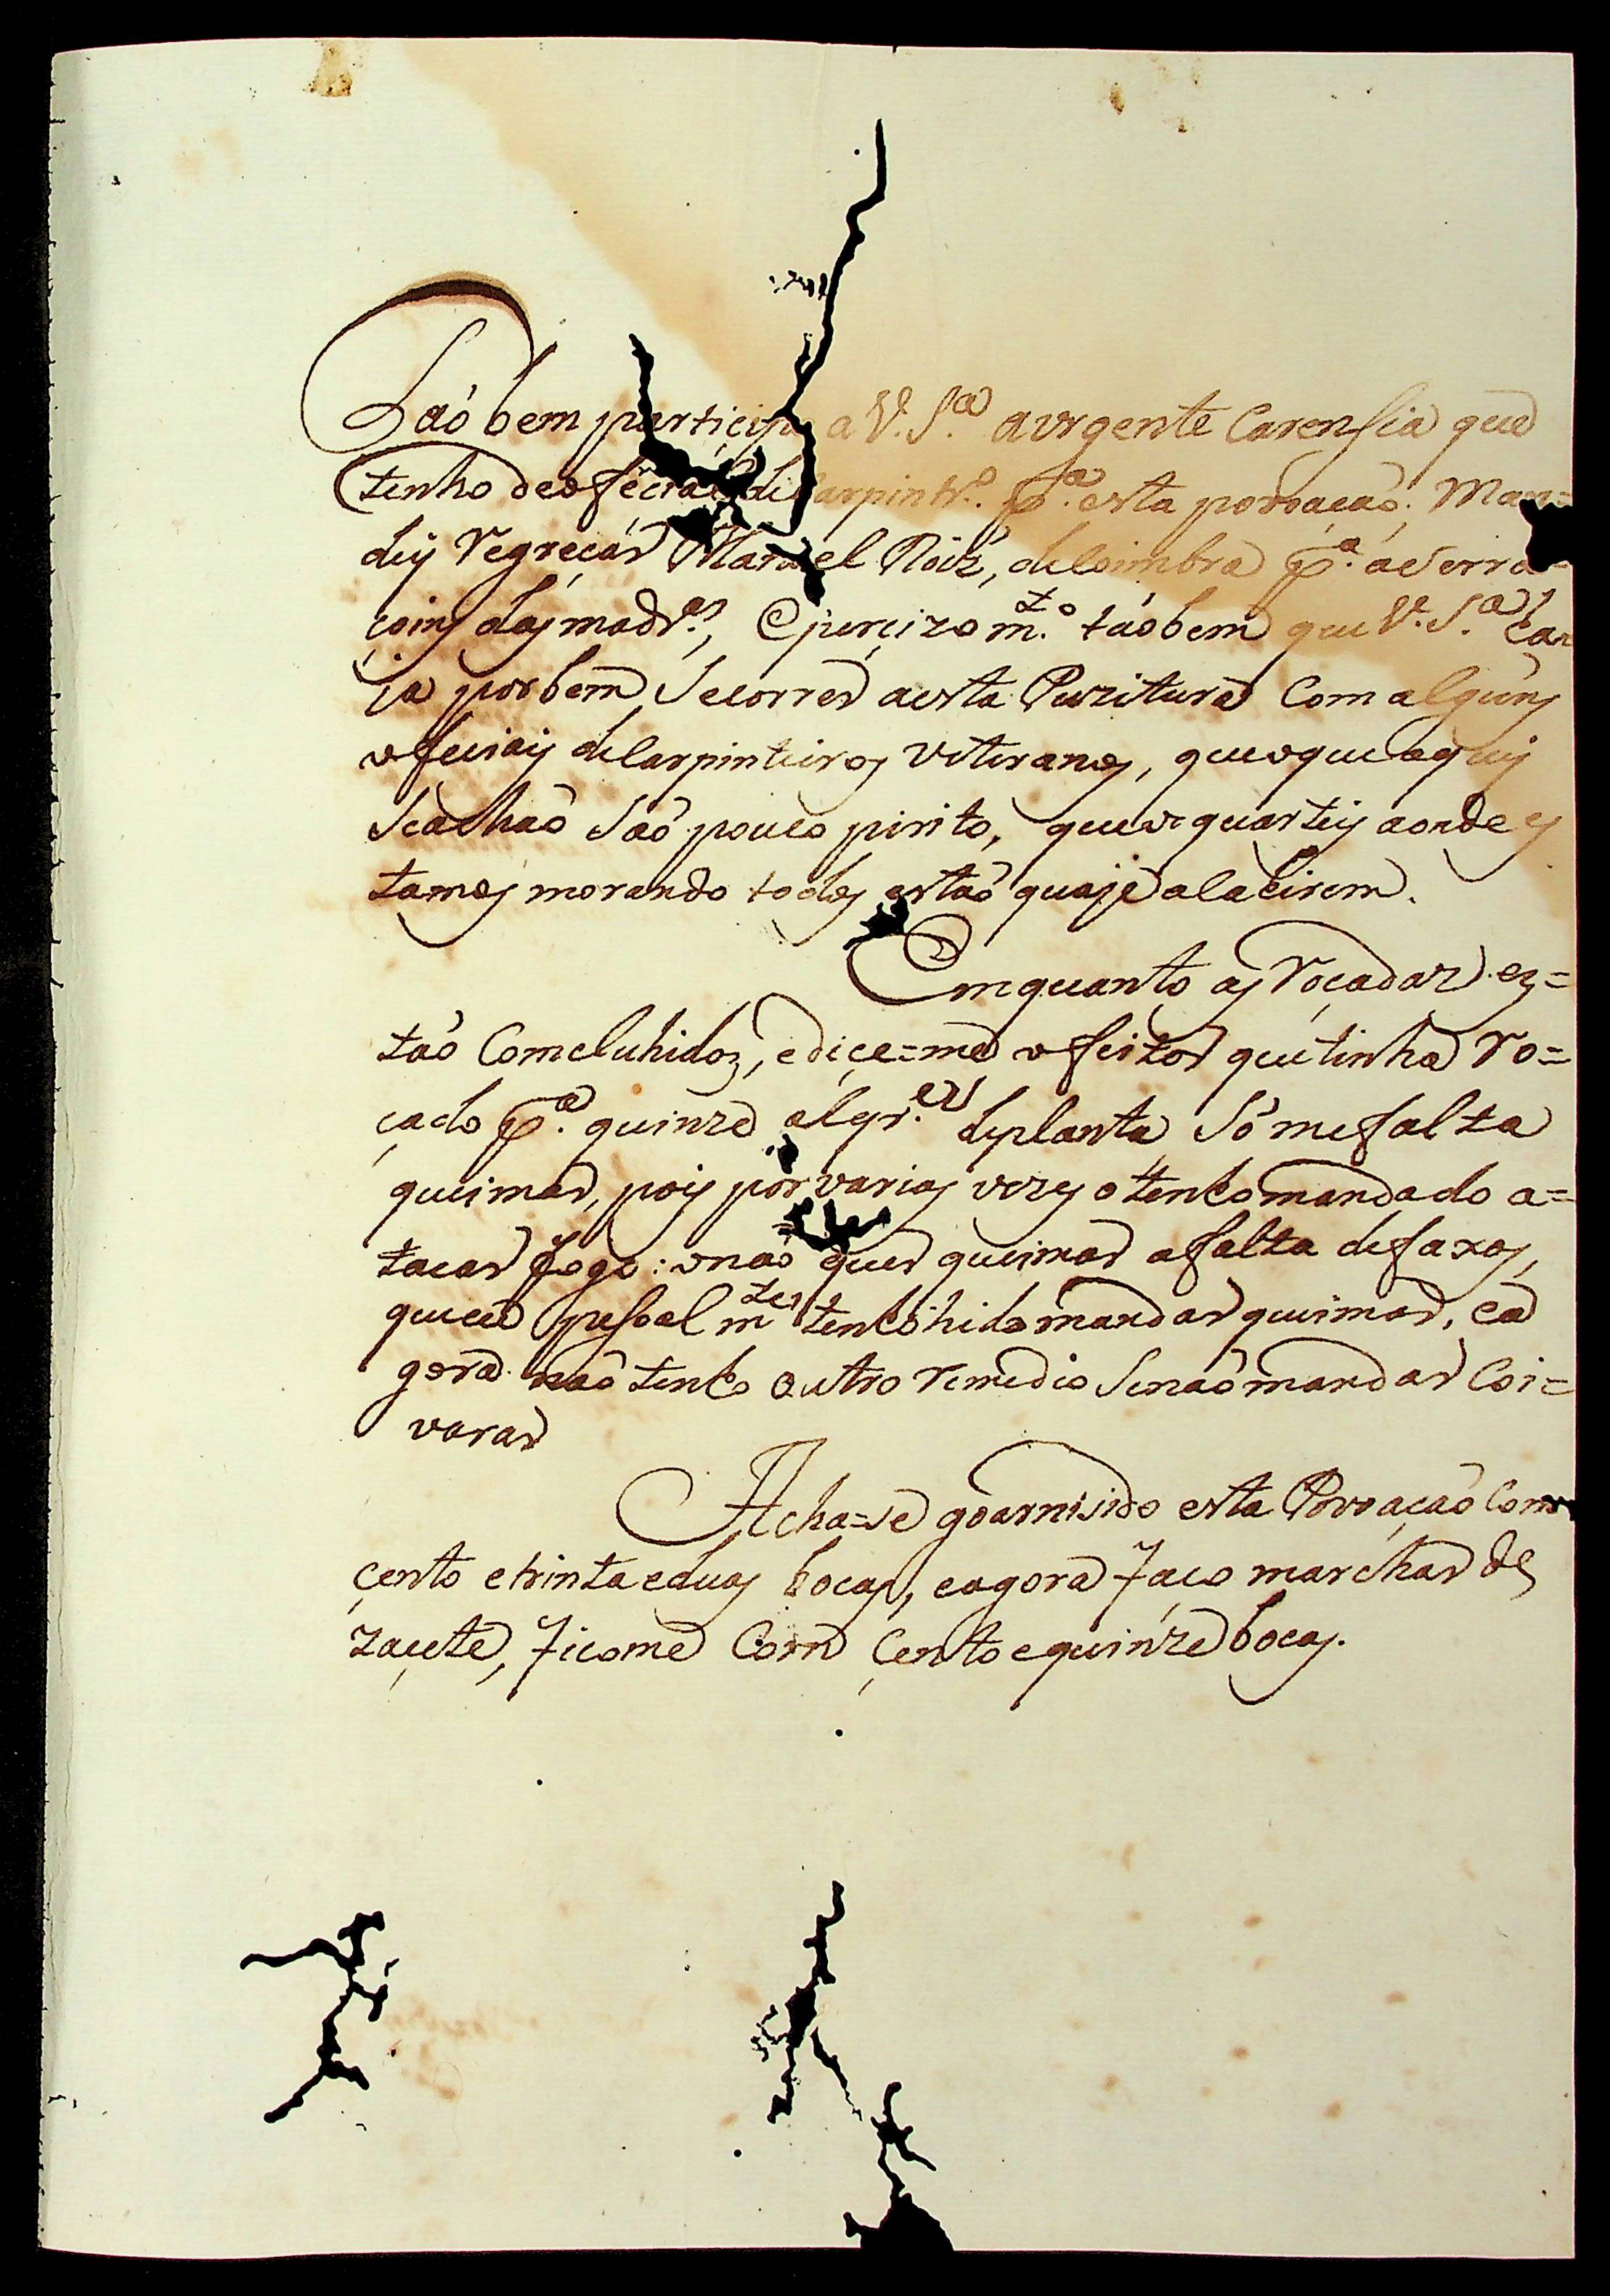 Taó bem participo a V. S.ª a vrgente Carensia que
tenho de ofeciaes de Carpintr.º p.ª esta povoaçaó; Man=
dey regreçar Manoel Roiz, de Coimbra p.ª a Serra=
çoins das madr.ªs, e preçizo m.to taóbem que V. S.ª
ja por bem Secorrer aesta Puzitura Com alguns
ofeciais de Carpinteiros viteranos, que os que aquy
Se achaõ Saõ pouco pirito, que os quarteis aonde es
tamos morando todos estaõ quaje a lacirem.
Emquanto as roçadas es=
taó Comcluhidoz, e diçe=me o feitor que tinha ro=
çado p.ª quinze alqr.es de planta Só me falta
queimar, pois por varias vezes o tenho mandado a=
tacar fogo: o naó quer queimar a falta de faxos,
que eu pesoal m.te tenho hido mandar queimar, e a
gora naó tenho outro remedio Senaó mandar Coi=
varar
Acha=se goarnisido esta Povoaçaó Com
çento e trinta e duas bocas, e agora faco marchar de
zaçete, ficome Com çento e quinze bocas.